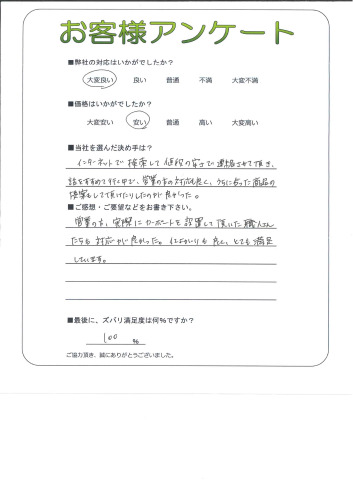 お客様アンケート
■弊社の対応はいかがでしたか?
大変良い 良い 普通 不満 大変不満
■価格はいかがでしたか?
大変安い 安い 普通 高い 大変高い
■当社を選んだ決め手は?
インターネットで検索して値段の安さで連絡させて頂き、
話をすすめて行く中で、営業の方の対応も良く、うちに合った商品の
提案もして頂けたりしたのが良かった。
■ご感想・ご要望などをお書き下さい。
営業の方、実際にカーポートを設置して頂いた職人さん
たちも対応が良かった。仕上がりも良く、とても満足
しています。
■最後に、ズバリ満足度は何%ですか?
100 %
ご協力頂き、誠にありがとうございました。